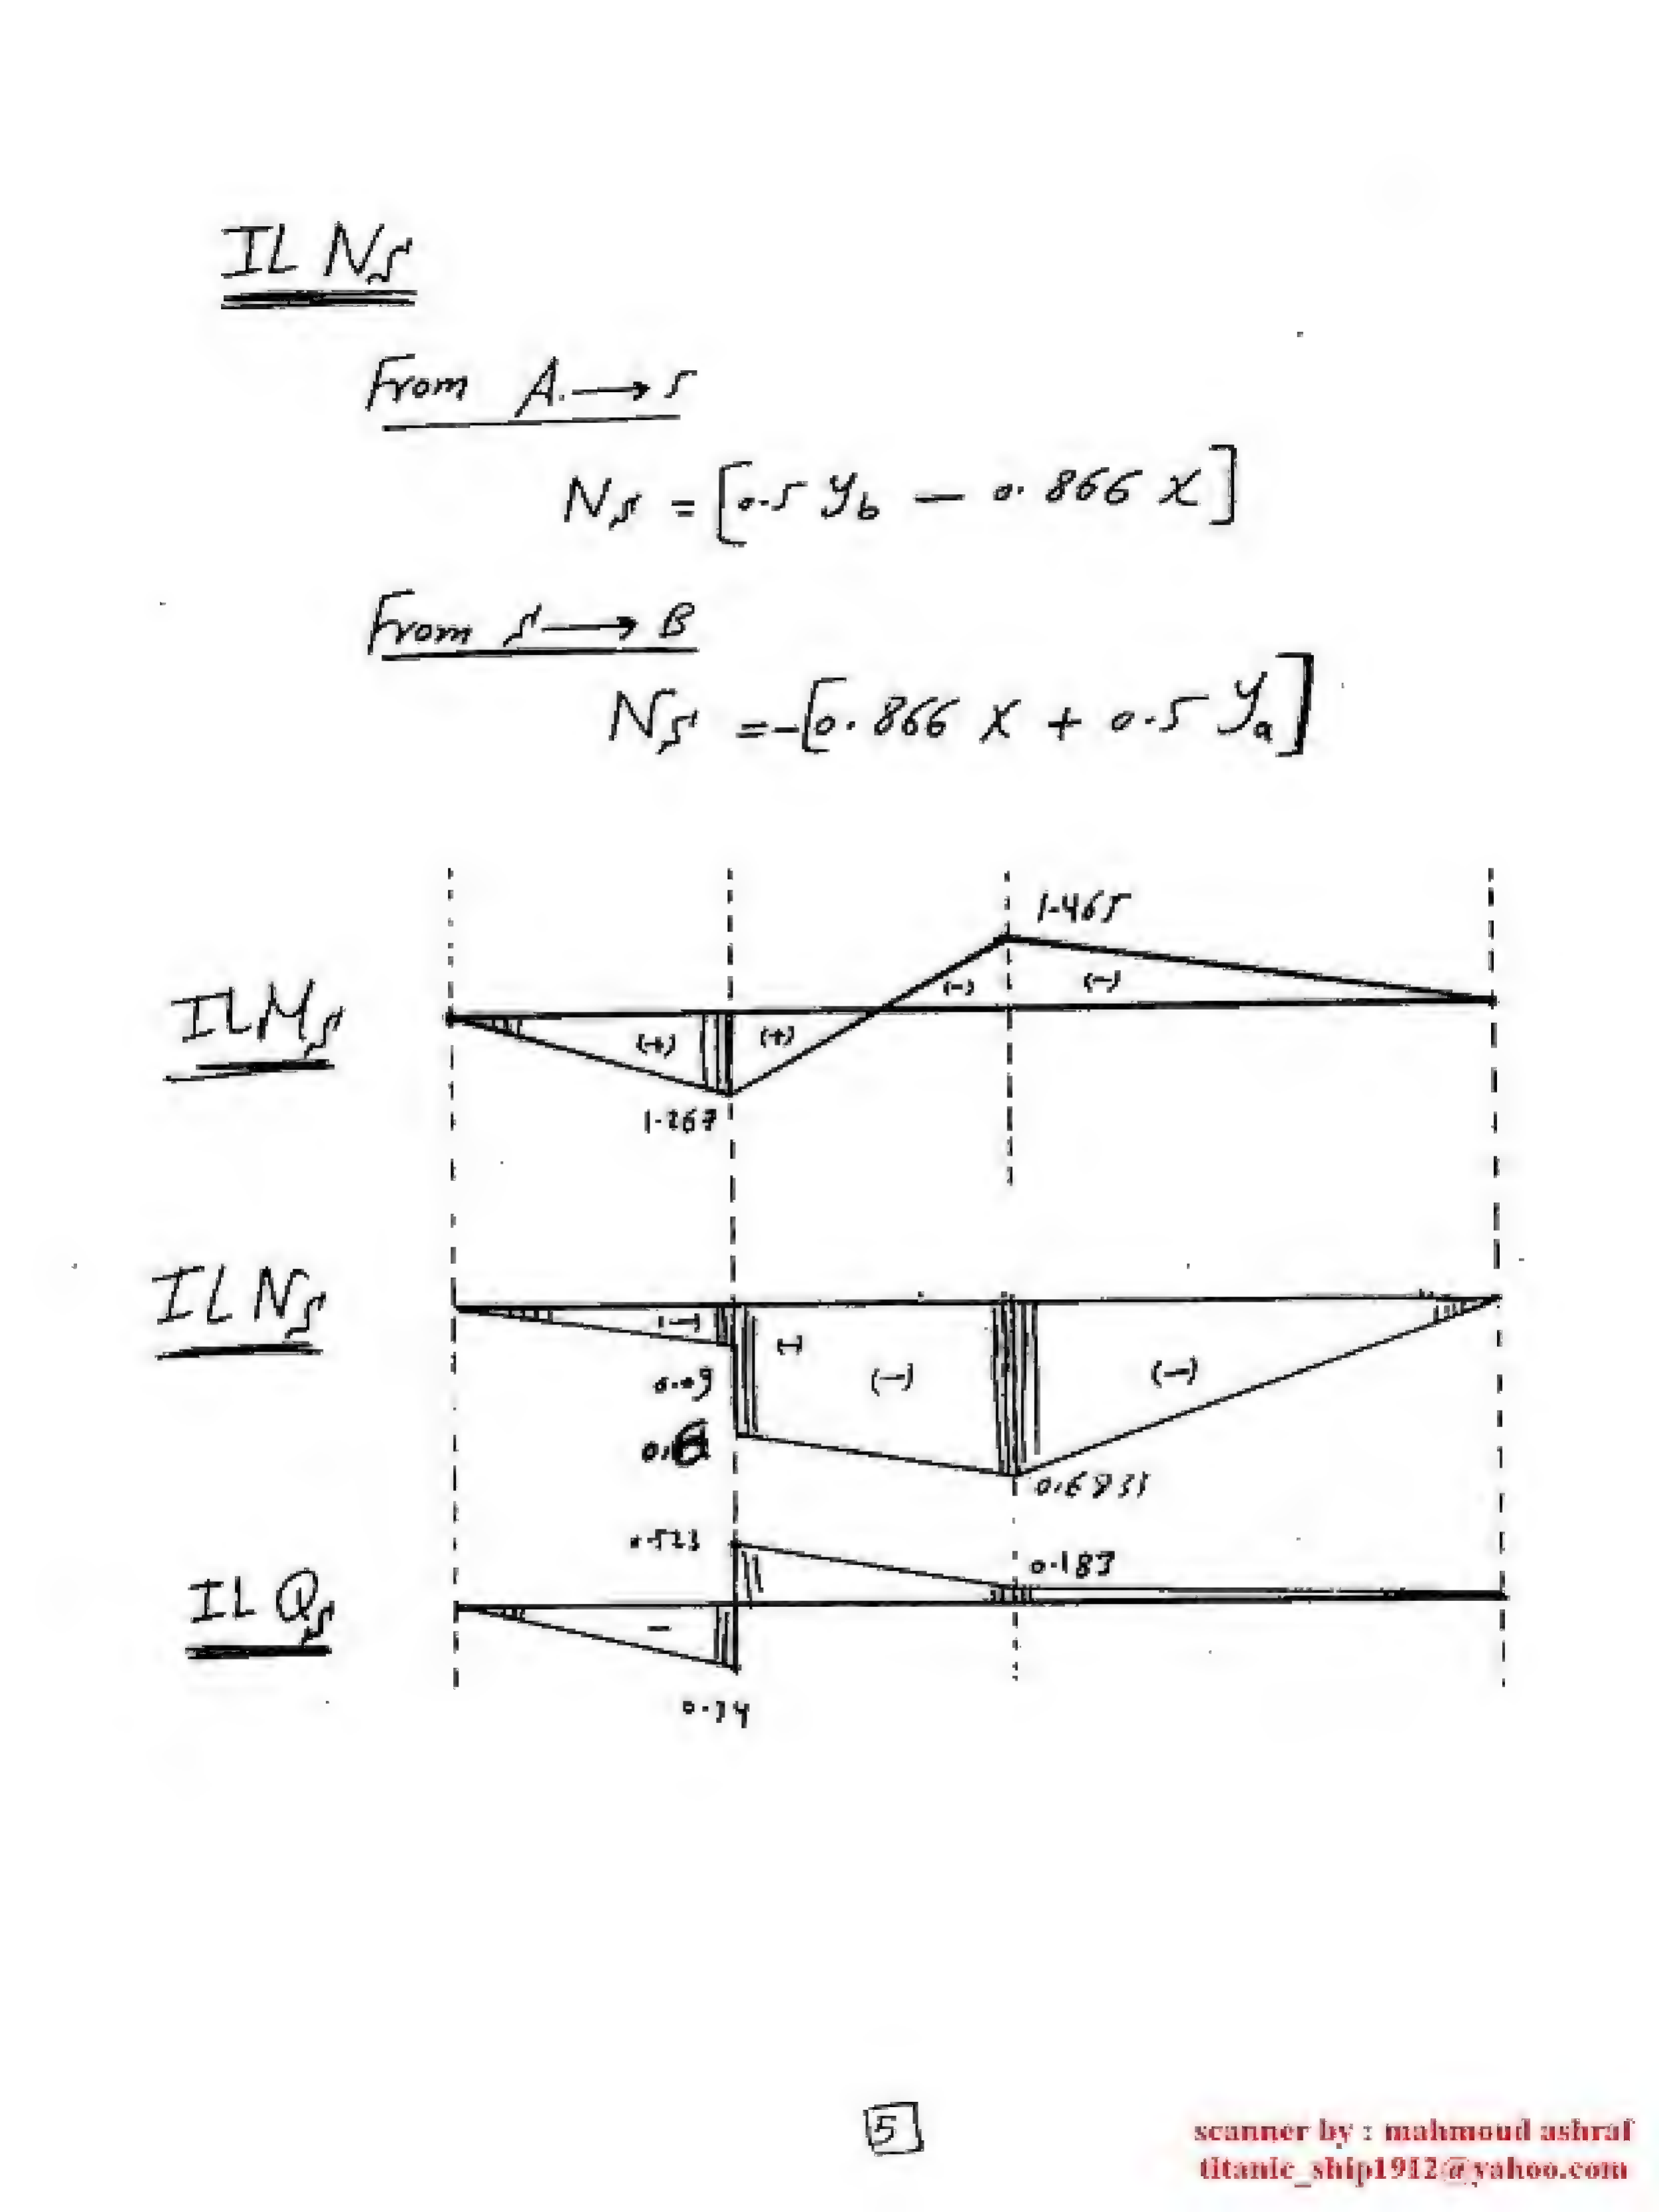 IL Ns
From A. → s
Ns = [0.5 yb - 0.866 x]
From s → B
Ns = -[0.866 x + 0.5 ya]
1.465
(-) (-)
IL Ms
(+) (+)
1.267
IL Ns
(-)
(-)
(-)
0.09
0.6833
0.523
0.183
IL Qs
-
0.34
5
scanner by : mahmoud ashraf
titanic_ship1912@yahoo.com